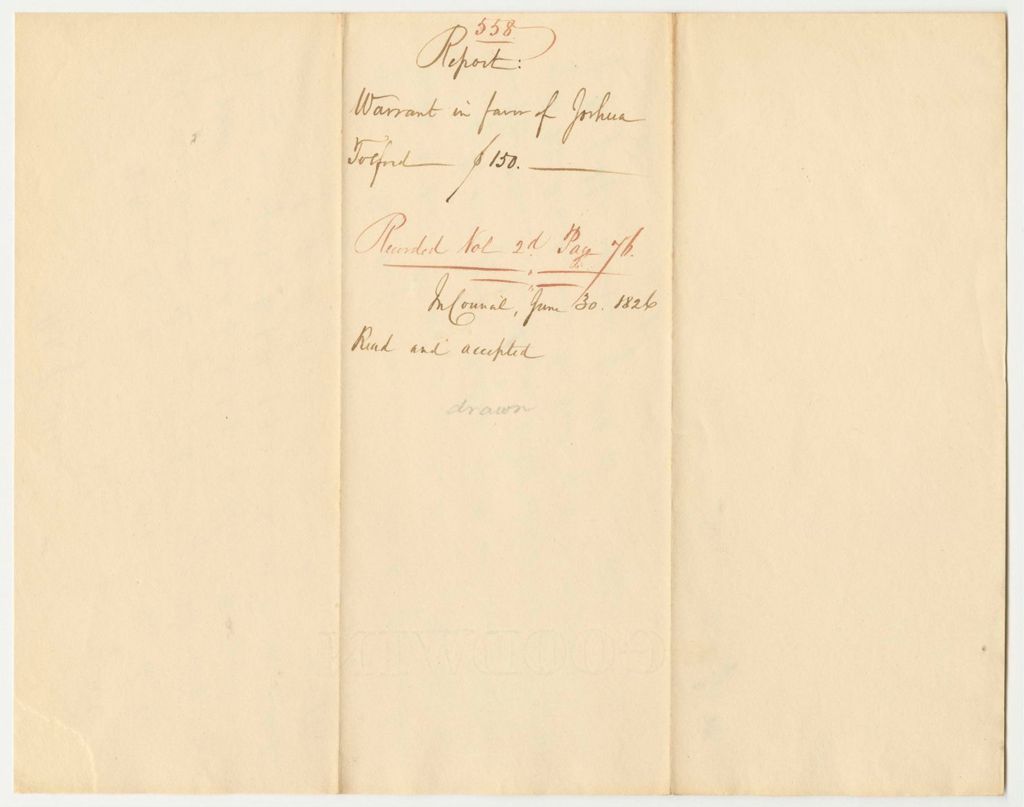 558
Report:
Warrant in favor of Joshua
Tolford $150.
Recorded Vol 2d. Page 76.
In Council, June 30. 1826
Read and accepted
drawn
GOODWIN